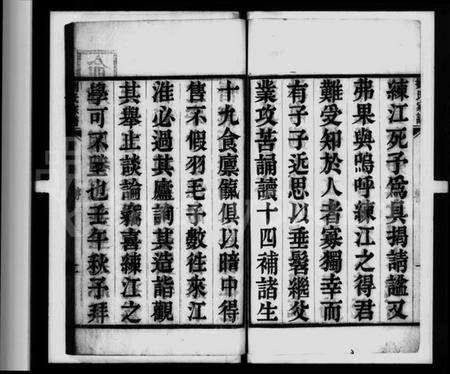 練江死予為具揭請謚又
弗果與嗚呼練江之得君
難受知於人者寡獨幸而
有子子近思以垂髫繼父
業攻苦誦讀十四補諸生
十九食廩餼俱以暗中得
售不假羽毛予數徃來江
淮必過其廬詢其造詣觀
其舉止談論竊喜練江之
學可不墜也壬午秋予拜